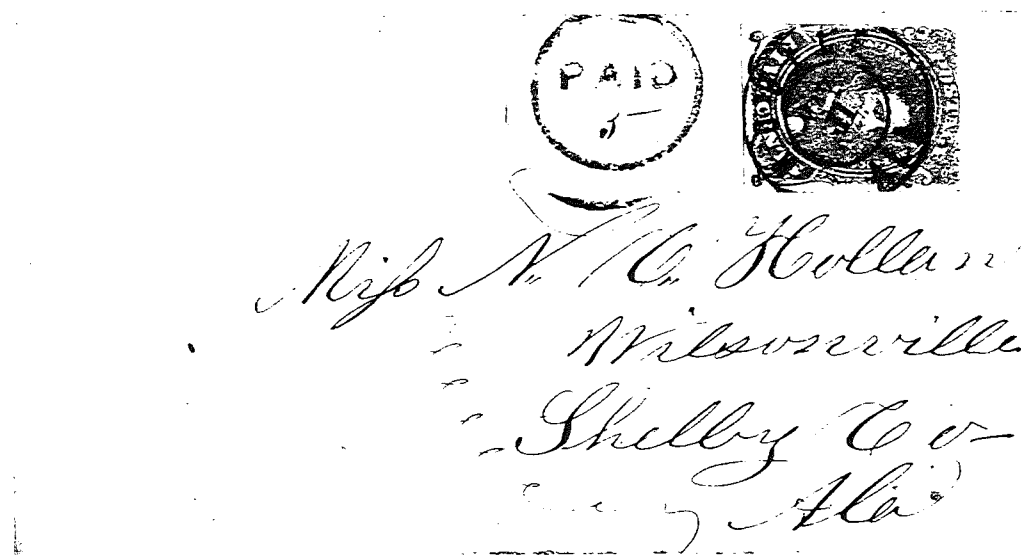 PAID
5
Miss N. C. Hollan
Wilsonville
Shelby Co-
Ala